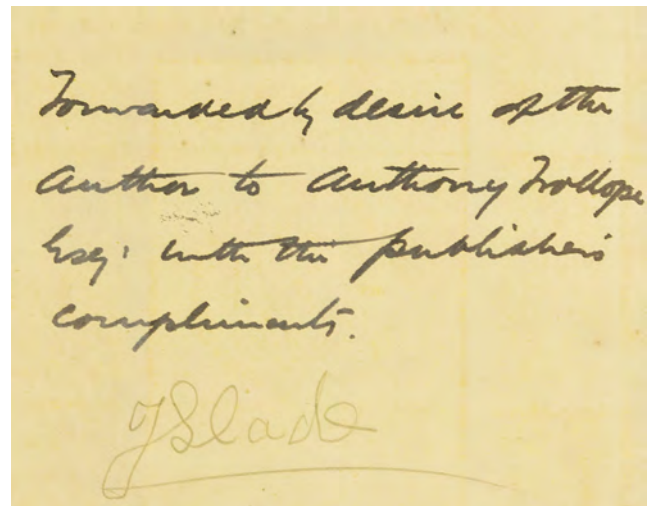 Forwarded by desire of the
Author to Anthony Trollope
Esq: with the publisher's
compliments.
J Slade